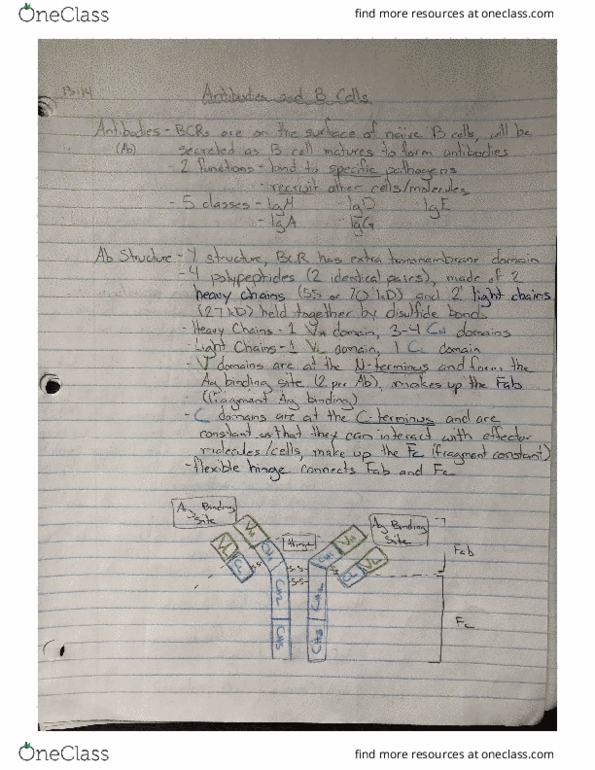 OneClass
find more resources at oneclass.com
Antibodies and B Cells
Antibodies - BCRs are on the surface of naive B cells, will be
(Ab) secreted as B cell matures to form antibodies
- 2 functions - bind to specific pathogens
- recruit other cells/molecules
- 5 classes - IgM - IgD - IgE
- IgA - IgG
Ab Structure - Y structure, BCR has extra transmembrane domain
- 4 polypeptides (2 identical pairs), made of 2
heavy chains (55 or 70 kD) and 2 light chains
(27kD) held together by disulfide bonds
- Heavy Chains - 1 VH domain, 3-4 CH domains
- Light Chains - 1 VL domain, 1 CL domain
- V domains are at the N-terminus and form the
Ag binding site (2 per Ab), makes up the Fab
(fragment Ag binding)
- C domains are at the C-terminus and are
constant so that they can interact with effector
molecules/cells, make up the Fc (fragment constant)
- flexible hinge connects Fab and Fc
Ag Binding Site
VH
CH1
VL
CL
Hinge
CH1
VH
CL
VL
Ag Binding Site
S-S
S-S
CH2
CH2
CH3
CH3
Fab
Fc
OneClass
find more resources at oneclass.com